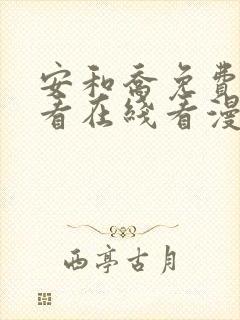 安和乔免费
看在线看漫
西亭古月